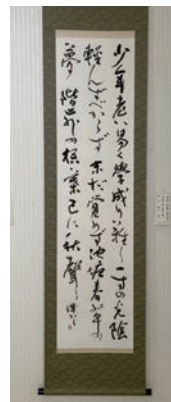 少年老い易く學成り難し一寸の光陰
軽んずべからず未だ覚めず池塘春草の
夢階前の梧葉已に秋聲